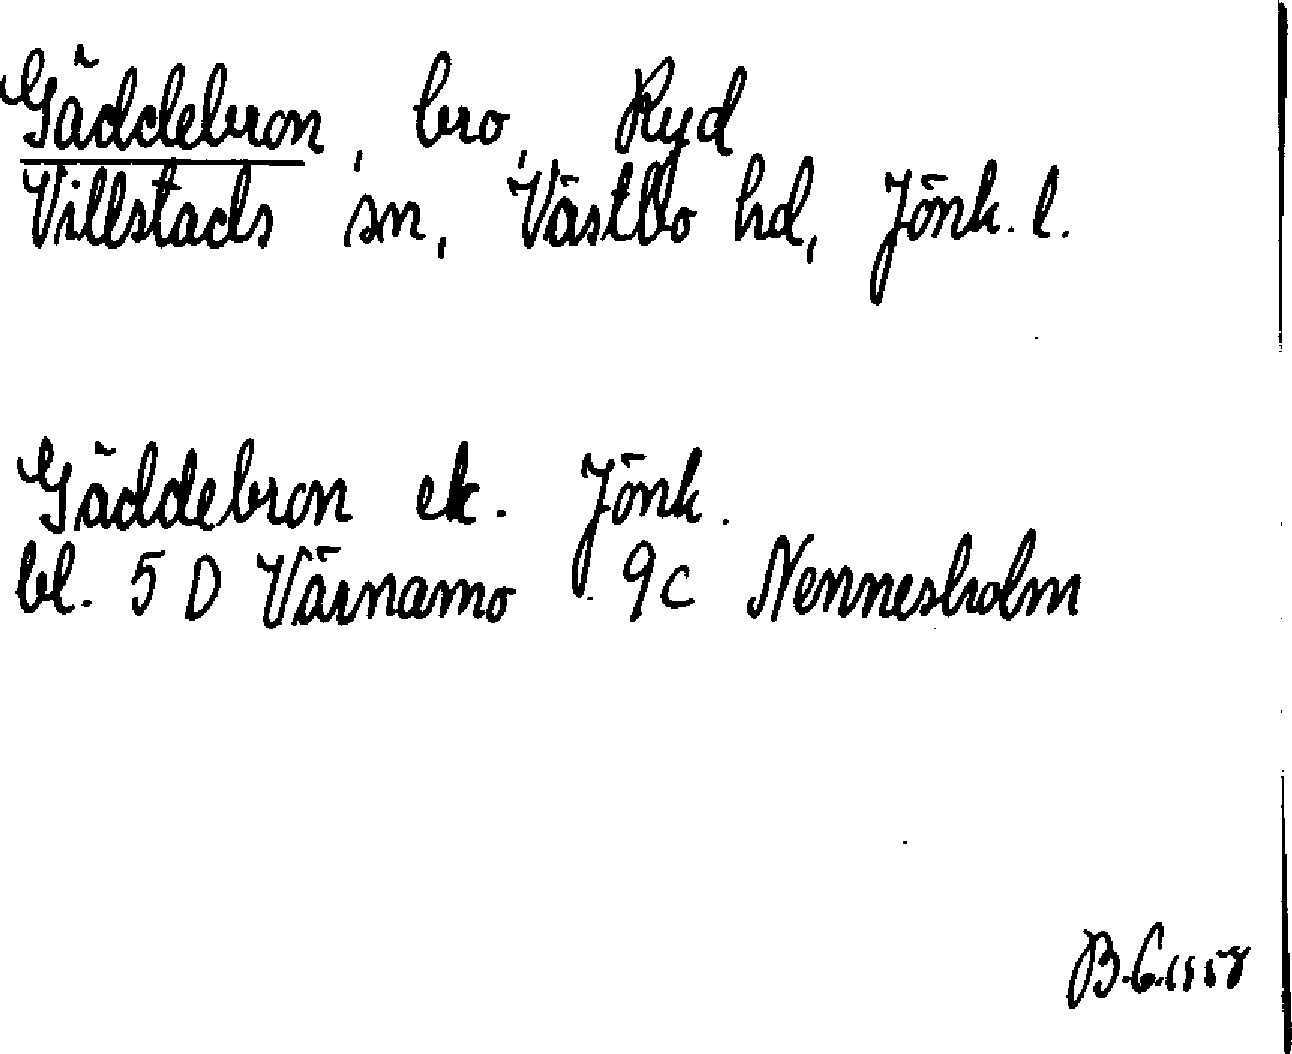 Gäddebron, bro, Ryd
Villstads sn, Västbo hd, Jönk. l.
Gäddebron ek. Jönk.
bl. 5 D Värnamo 9c Nennesholm